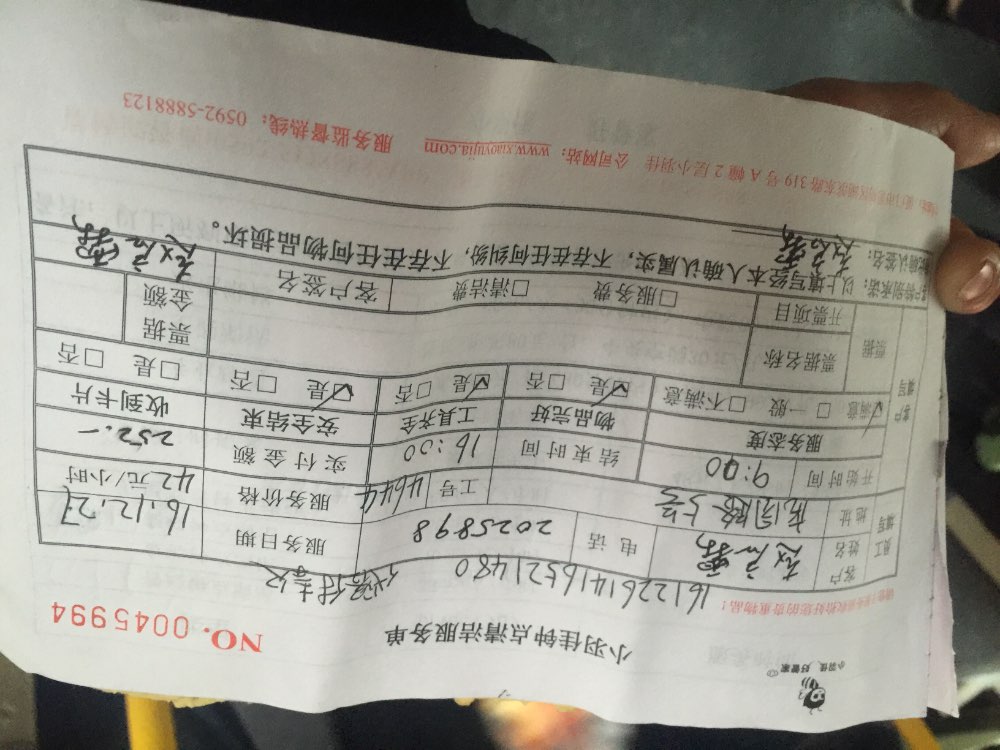 小羽佳 好管家
小羽佳钟点清洁服务单
NO. 0045994
请您于服务前收拾好您的贵重物品：
1612261416521480
员工填写
客户姓名
电话 2025898
服务日期 16.12.27
地址
工号 4644
服务价格 42元/小时
开始时间 9:00
结束时间 16:00
实付金额 252.—
客户填写
服务态度 物品完好 工具齐全 安全结束 收到卡片
☑满意 □一般 □不满意 ☑是 □否 ☑是 □否 ☑是 □否 □是 □否
票据 票据名称
票据金额
开票项目 □服务费 □清洁费 客户签名
客户特别承诺：以上填写经本人确认属实，不存在任何纠纷，不存在任何物品损坏。
确认签名：
319 号 A 幢 2 层小羽佳 公司网站：www.xiaoyujia.com 服务监督热线：0592-5888123